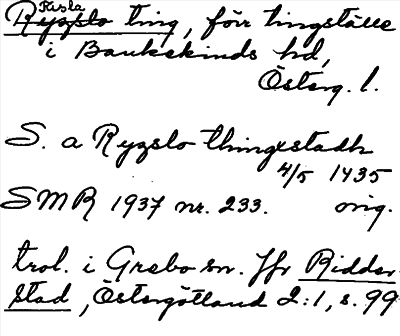 Risla
Ryzslo ting, förr tingställe
i Bankekinds hd,
Österg. l.
S. a Ryzslo thingxstadh
4/5 1435
SMR 1937 nr. 233. orig.
trol. i Grebo sn. Jfr Ridder-
stad, Östergötland 2:1, s. 99